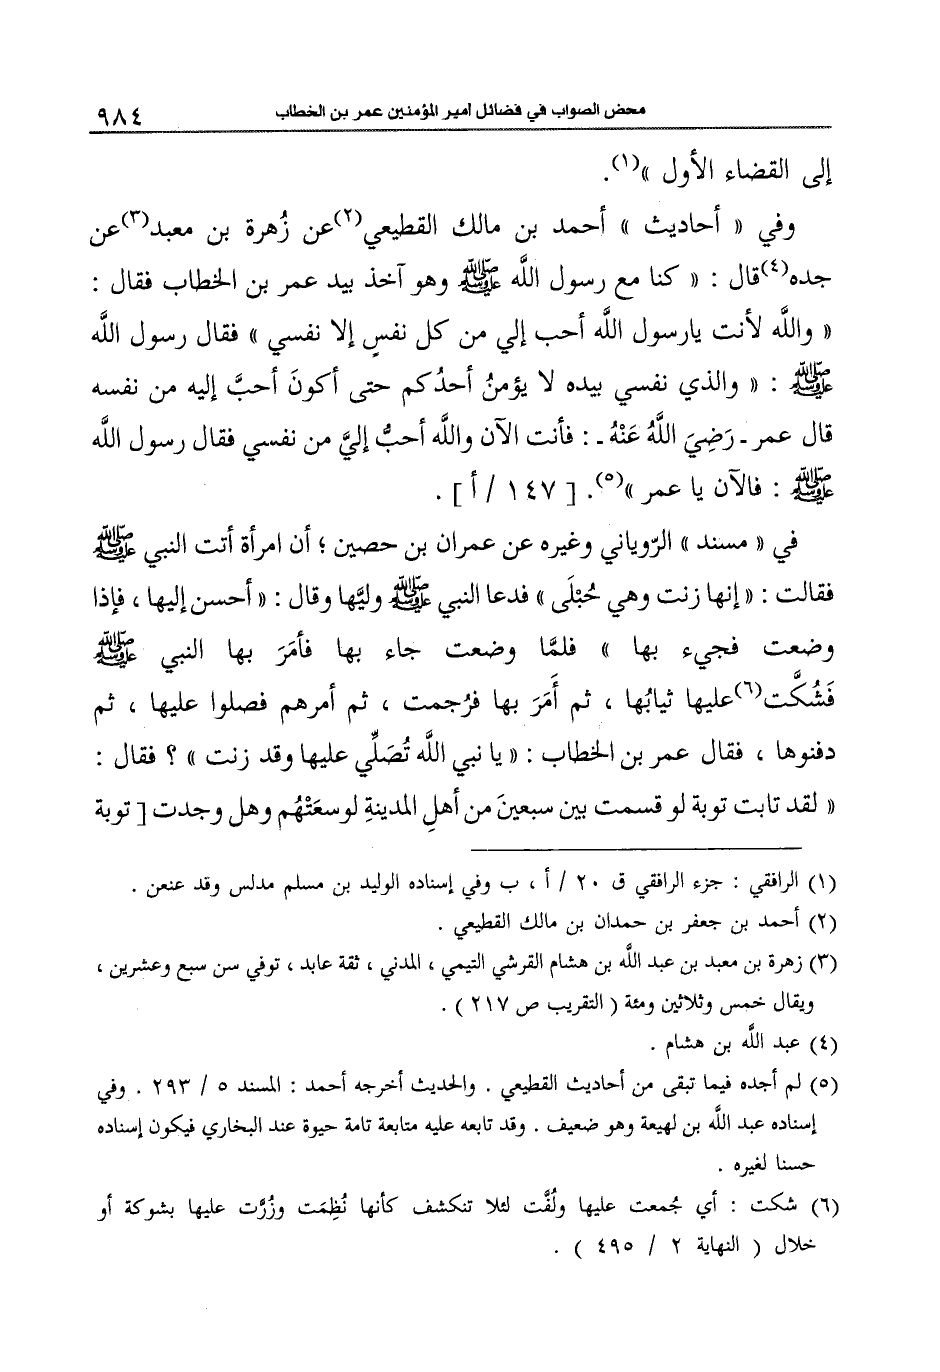 محض الصواب في فضائل أمير المؤمنين عمر بن الخطاب ٩٨٤
إلى القضاء الأول »(١).
وفي « أحاديث » أحمد بن مالك القطيعي(٢)عن زُهرة بن معبد(٣)عن
جده(٤)قال : « كنا مع رسول اللَّه ﷺ وهو آخذ بيد عمر بن الخطاب فقال :
« واللَّه لأنت يارسول اللَّه أحب إلي من كل نفسٍ إلا نفسي » فقال رسول اللَّه
ﷺ : « والذي نفسي بيده لا يؤمنُ أحدُكم حتى أكونَ أحبَّ إليه من نفسه
قال عمر ـ رَضِيَ اللَّهُ عَنْهُ ـ : فأنت الآن واللَّه أحبُّ إليَّ من نفسي فقال رسول اللَّه
ﷺ : فالآن يا عمر »(٥). [ ١٤٧ / أ ] .
في « مسند » الرّوياني وغيره عن عمران بن حصين ؛ أن امرأة أتت النبي ﷺ
فقالت : « إنها زنت وهي حُبْلَى » فدعا النبي ﷺ وليَّها وقال : « أحسن إليها ، فإذا
وضعت فجيء بها » فلمَّا وضعت جاء بها فأمَرَ بها النبي ﷺ
فَشُكَّت(٦)عليها ثيابُها ، ثم أَمَرَ بها فرُجمت ، ثم أمرهم فصلوا عليها ، ثم
دفنوها ، فقال عمر بن الخطاب : « يا نبي اللَّه تُصَلِّي عليها وقد زنت » ؟ فقال :
« لقد تابت توبة لو قسمت بين سبعينَ من أهلِ المدينةِ لوسعَتْهُم وهل وجدت [ توبة
(١) الرافقي : جزء الرافقي ق ٢٠ / أ ، ب وفي إسناده الوليد بن مسلم مدلس وقد عنعن .
(٢) أحمد بن جعفر بن حمدان بن مالك القطيعي .
(٣) زهرة بن معبد بن عبد اللَّه بن هشام القرشي التيمي ، المدني ، ثقة عابد ، توفي سن سبع وعشرين ،
ويقال خمس وثلاثين ومئة ( التقريب ص ٢١٧ ) .
(٤) عبد اللَّه بن هشام .
(٥) لم أجده فيما تبقى من أحاديث القطيعي . والحديث أخرجه أحمد : المسند ٥ / ٢٩٣ . وفي
إسناده عبد اللَّه بن لهيعة وهو ضعيف . وقد تابعه عليه متابعة تامة حيوة عند البخاري فيكون إسناده
حسنا لغيره .
(٦) شكت : أي جُمعت عليها ولُفَّت لئلا تنكشف كأنها نُظِمَت وزُرَّت عليها بشوكة أو
خلال ( النهاية ٢ / ٤٩٥ ) .